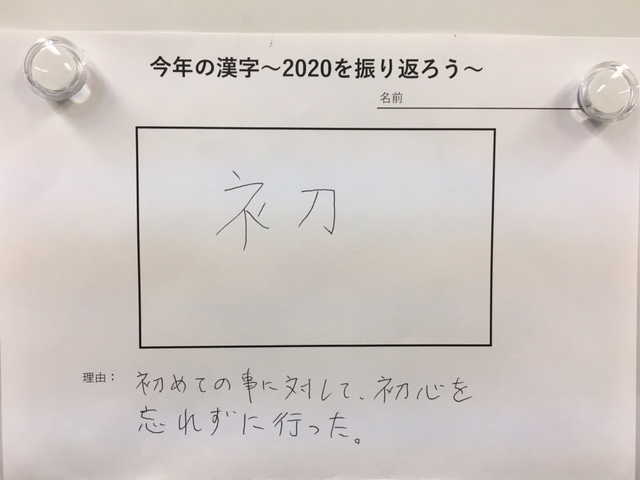 今年の漢字～2020を振り返ろう～
名前
初
理由： 初めての事に対して、初心を
忘れずに行った。